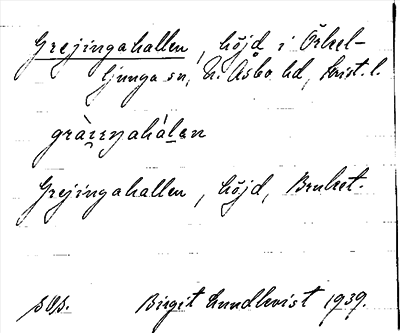 Grejingahallen, höjd i Örkel-
ljunga sn, N. Åsbo hd, Krist. l.
gràɪŋahálen
Grejingahallen, höjd, Bruket.
Birgit Lundkvist 1939.